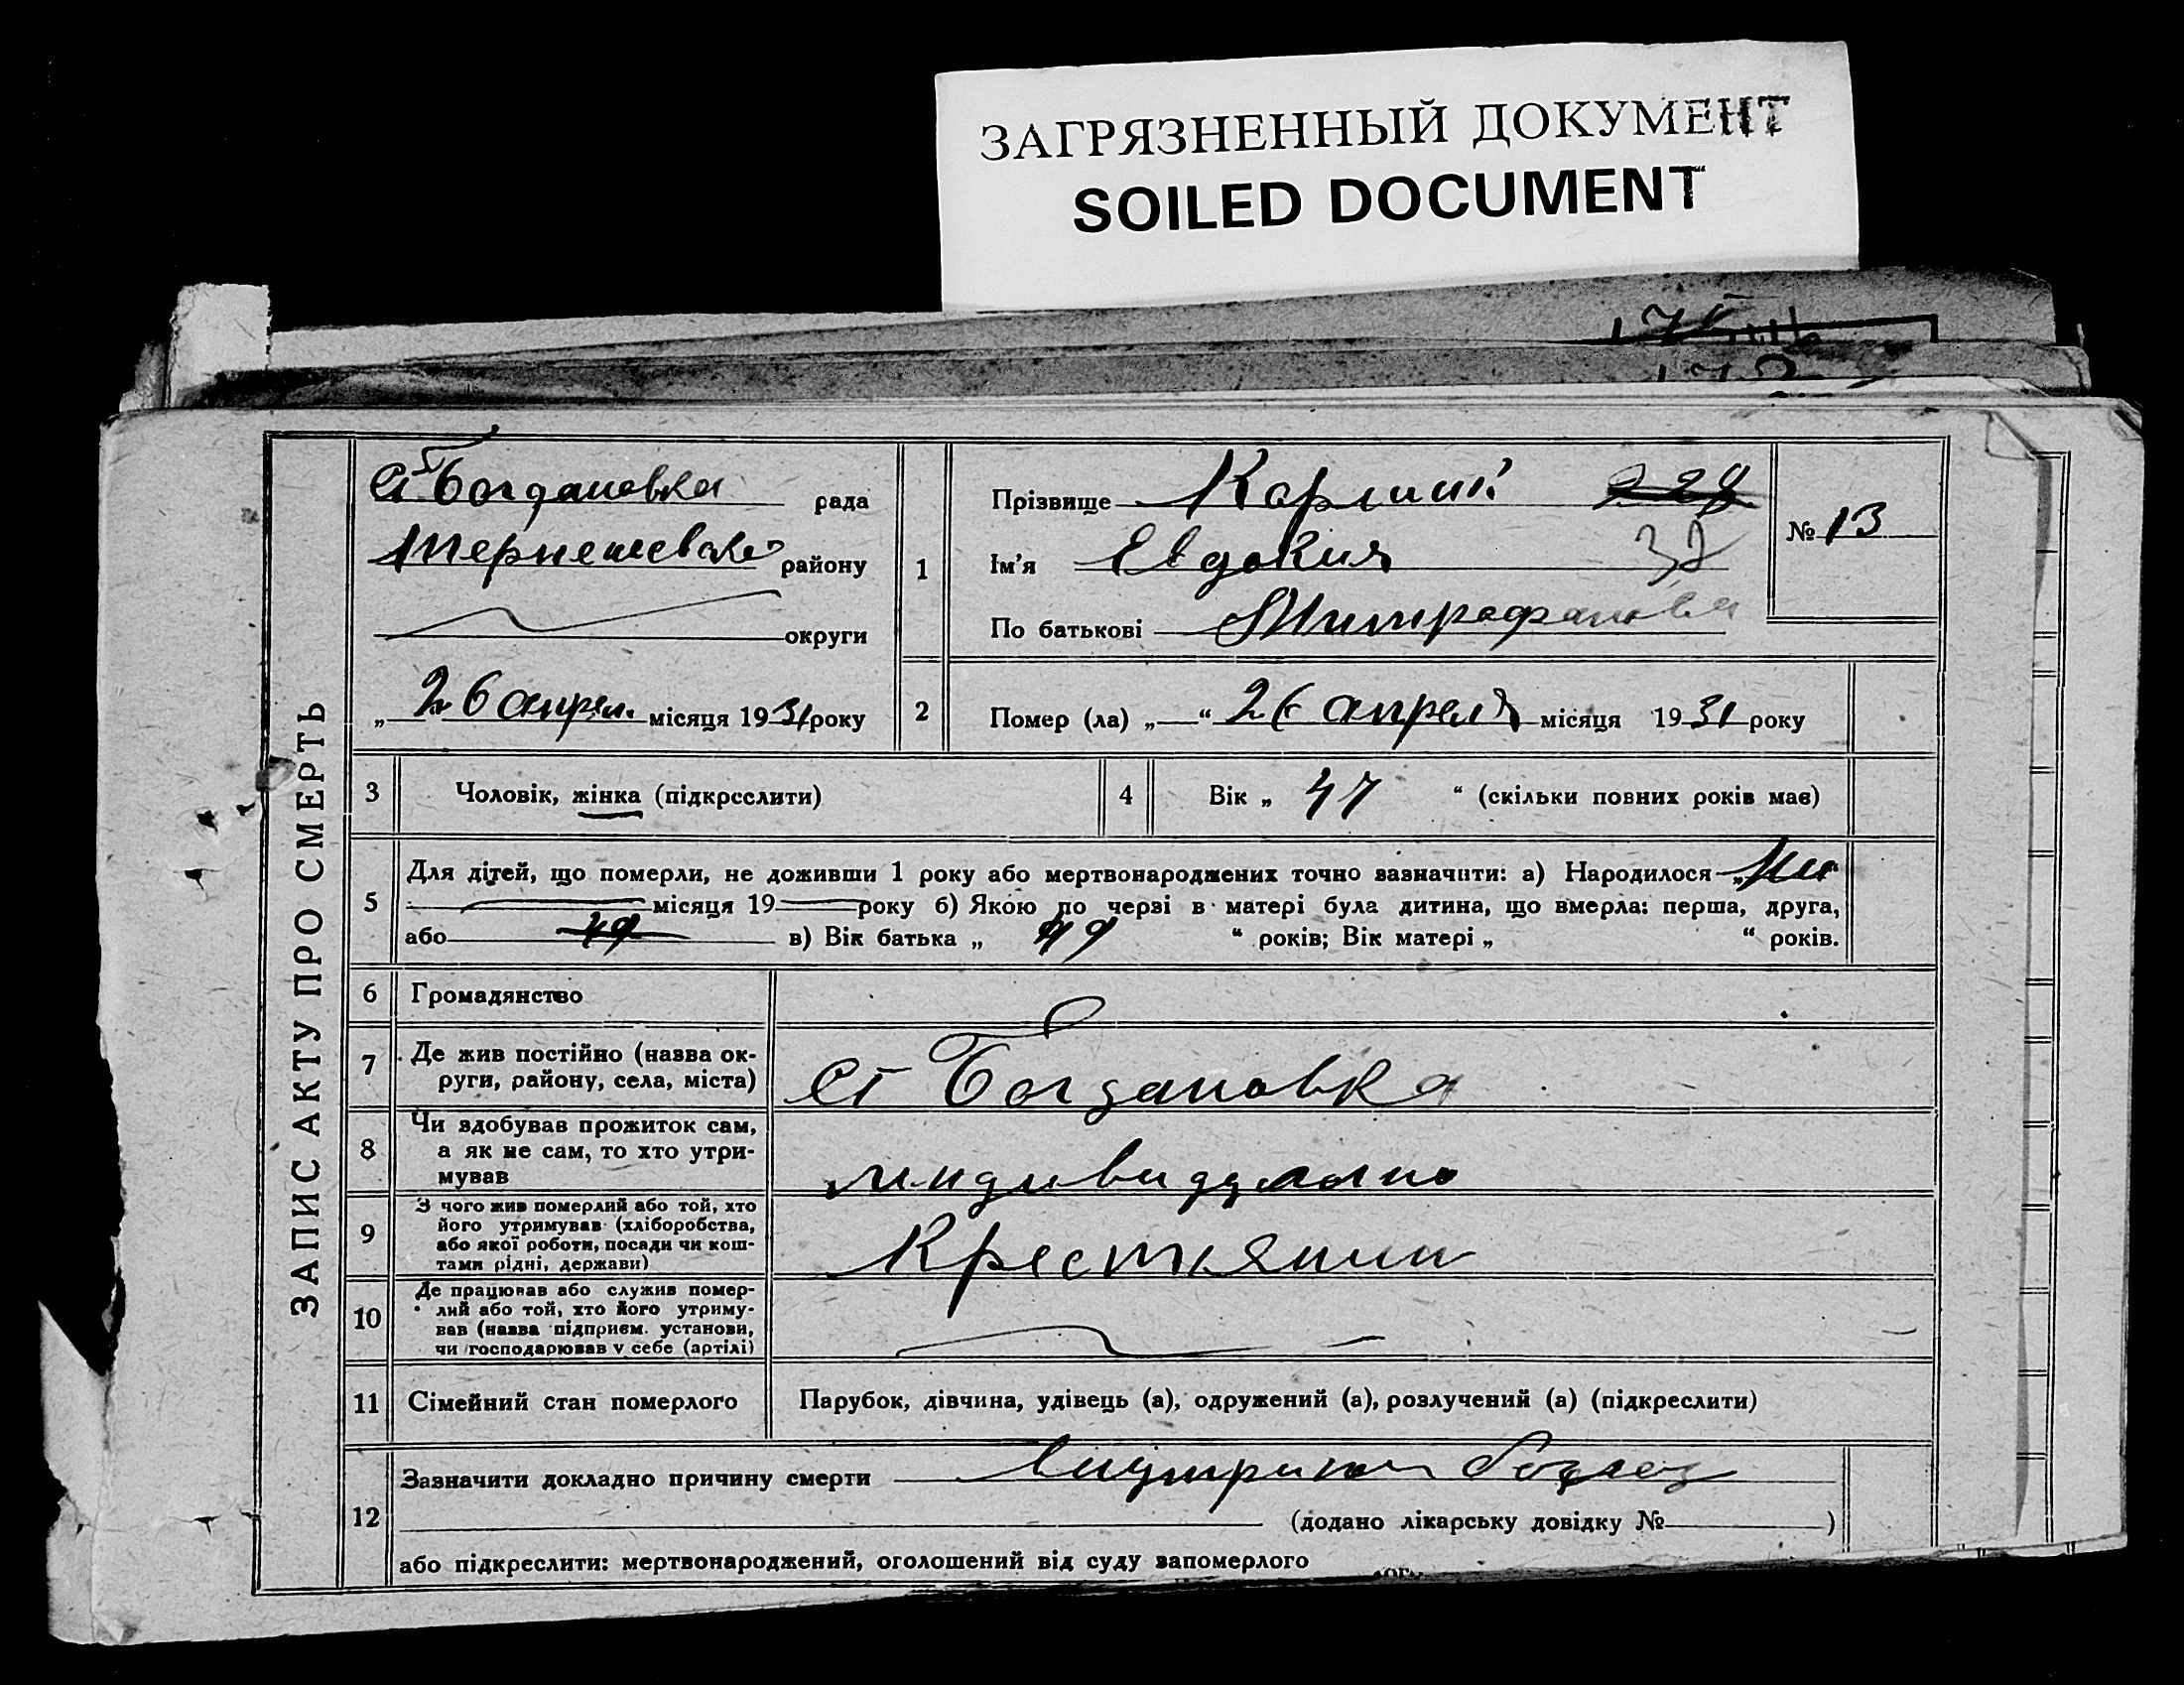 ЗАГРЯЗНЕННЫЙ ДОКУМЕНТ
SOILED DOCUMENT
ЗАПИС АКТУ ПРО СМЕРТЬ
Богдановка рада
району
округи
„ 26 апрел. місяця 1931 року
1
Прізвище
Ім'я Евдокия 32
По батькові Митрофановна
№ 13
2
Помер (ла) „ “ 26 апреля місяця 1931 року
3 Чоловік, жінка (підкреслити)
4 Вік „ 47 “ (скільки повних років має)
5
Для дітей, що померли, не доживши 1 року або мертвонароджених точно зазначити: а) Народилося „
місяця 19 року б) Якою по черзі в матері була дитина, що вмерла: перша, друга,
або 49 в) Вік батька „ 49 “ років; Вік матері „ “ років.
6 Громадянство
7 Де жив постійно (назва ок-
руги, району, села, міста)
Богдановка
8 Чи здобував прожиток сам,
а як не сам, то хто утри-
мував
9 З чого жив померлий або той, хто
його утримував (хліборобства,
або якої роботи, посади чи кош-
тами рідні, держави)
Крестьянин
10 Де працював або служив помер-
лий або той, хто його утриму-
вав (назва підприєм. установи,
чи господарював у себе (артілі)
11 Сімейний стан померлого
Парубок, дівчина, удівець (а), одружений (а), розлучений (а) (підкреслити)
12
Зазначити докладно причину смерти
(додано лікарську довідку № )
або підкреслити: мертвонароджений, оголошений від суду запомерлого